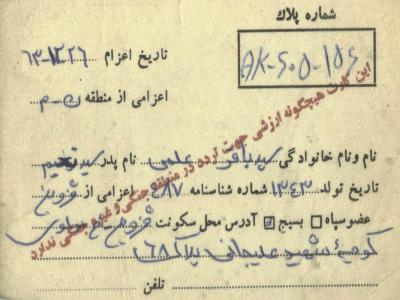 شماره پلاک
AK-505-156
تاریخ اعزام ۶۳-۱۲-۲۶
اعزامی از منطقه ن-م
این کارت هیچگونه ارزشی جهت تردد در منطقه جنگی و غیر جنگی ندارد
نام و نام خانوادگی سید باقر علمی نام پدر سید
تاریخ تولد ۱۳۴۳ شماره شناسنامه ۴۸۷ اعزامی از قزوین
عضو سپاه □ بسیج ☑ آدرس محل سکونت قزوین خ
کوچه شهید علیجانی پلاک ۶۸
تلفن